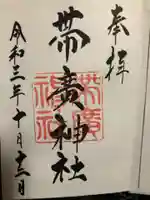 奉拝
帯廣神社
帯廣
神社
令和三年十月十三日